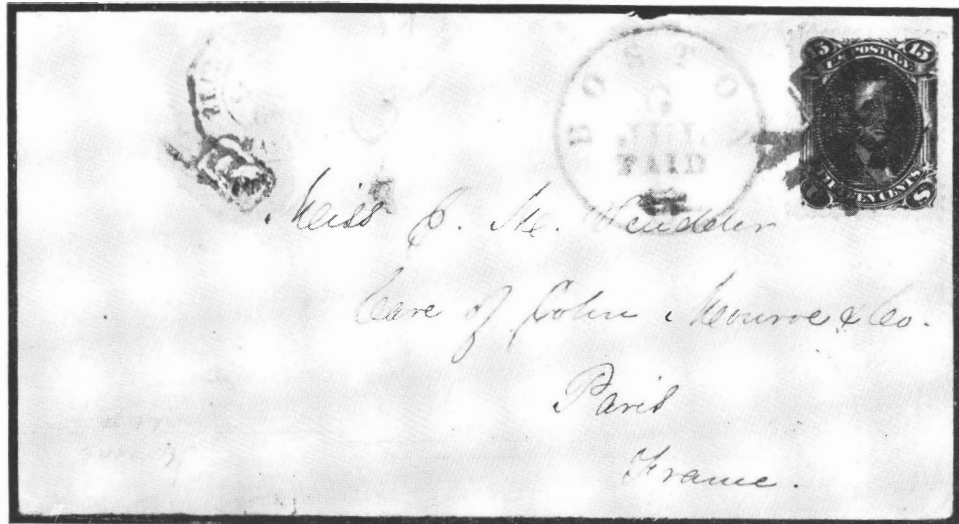 BOSTON
6
JUL
PAID
15 U.S. POSTAGE 15
CENTS
Miss C. M. Scudder
Care of John Munroe & Co.
Paris
France.